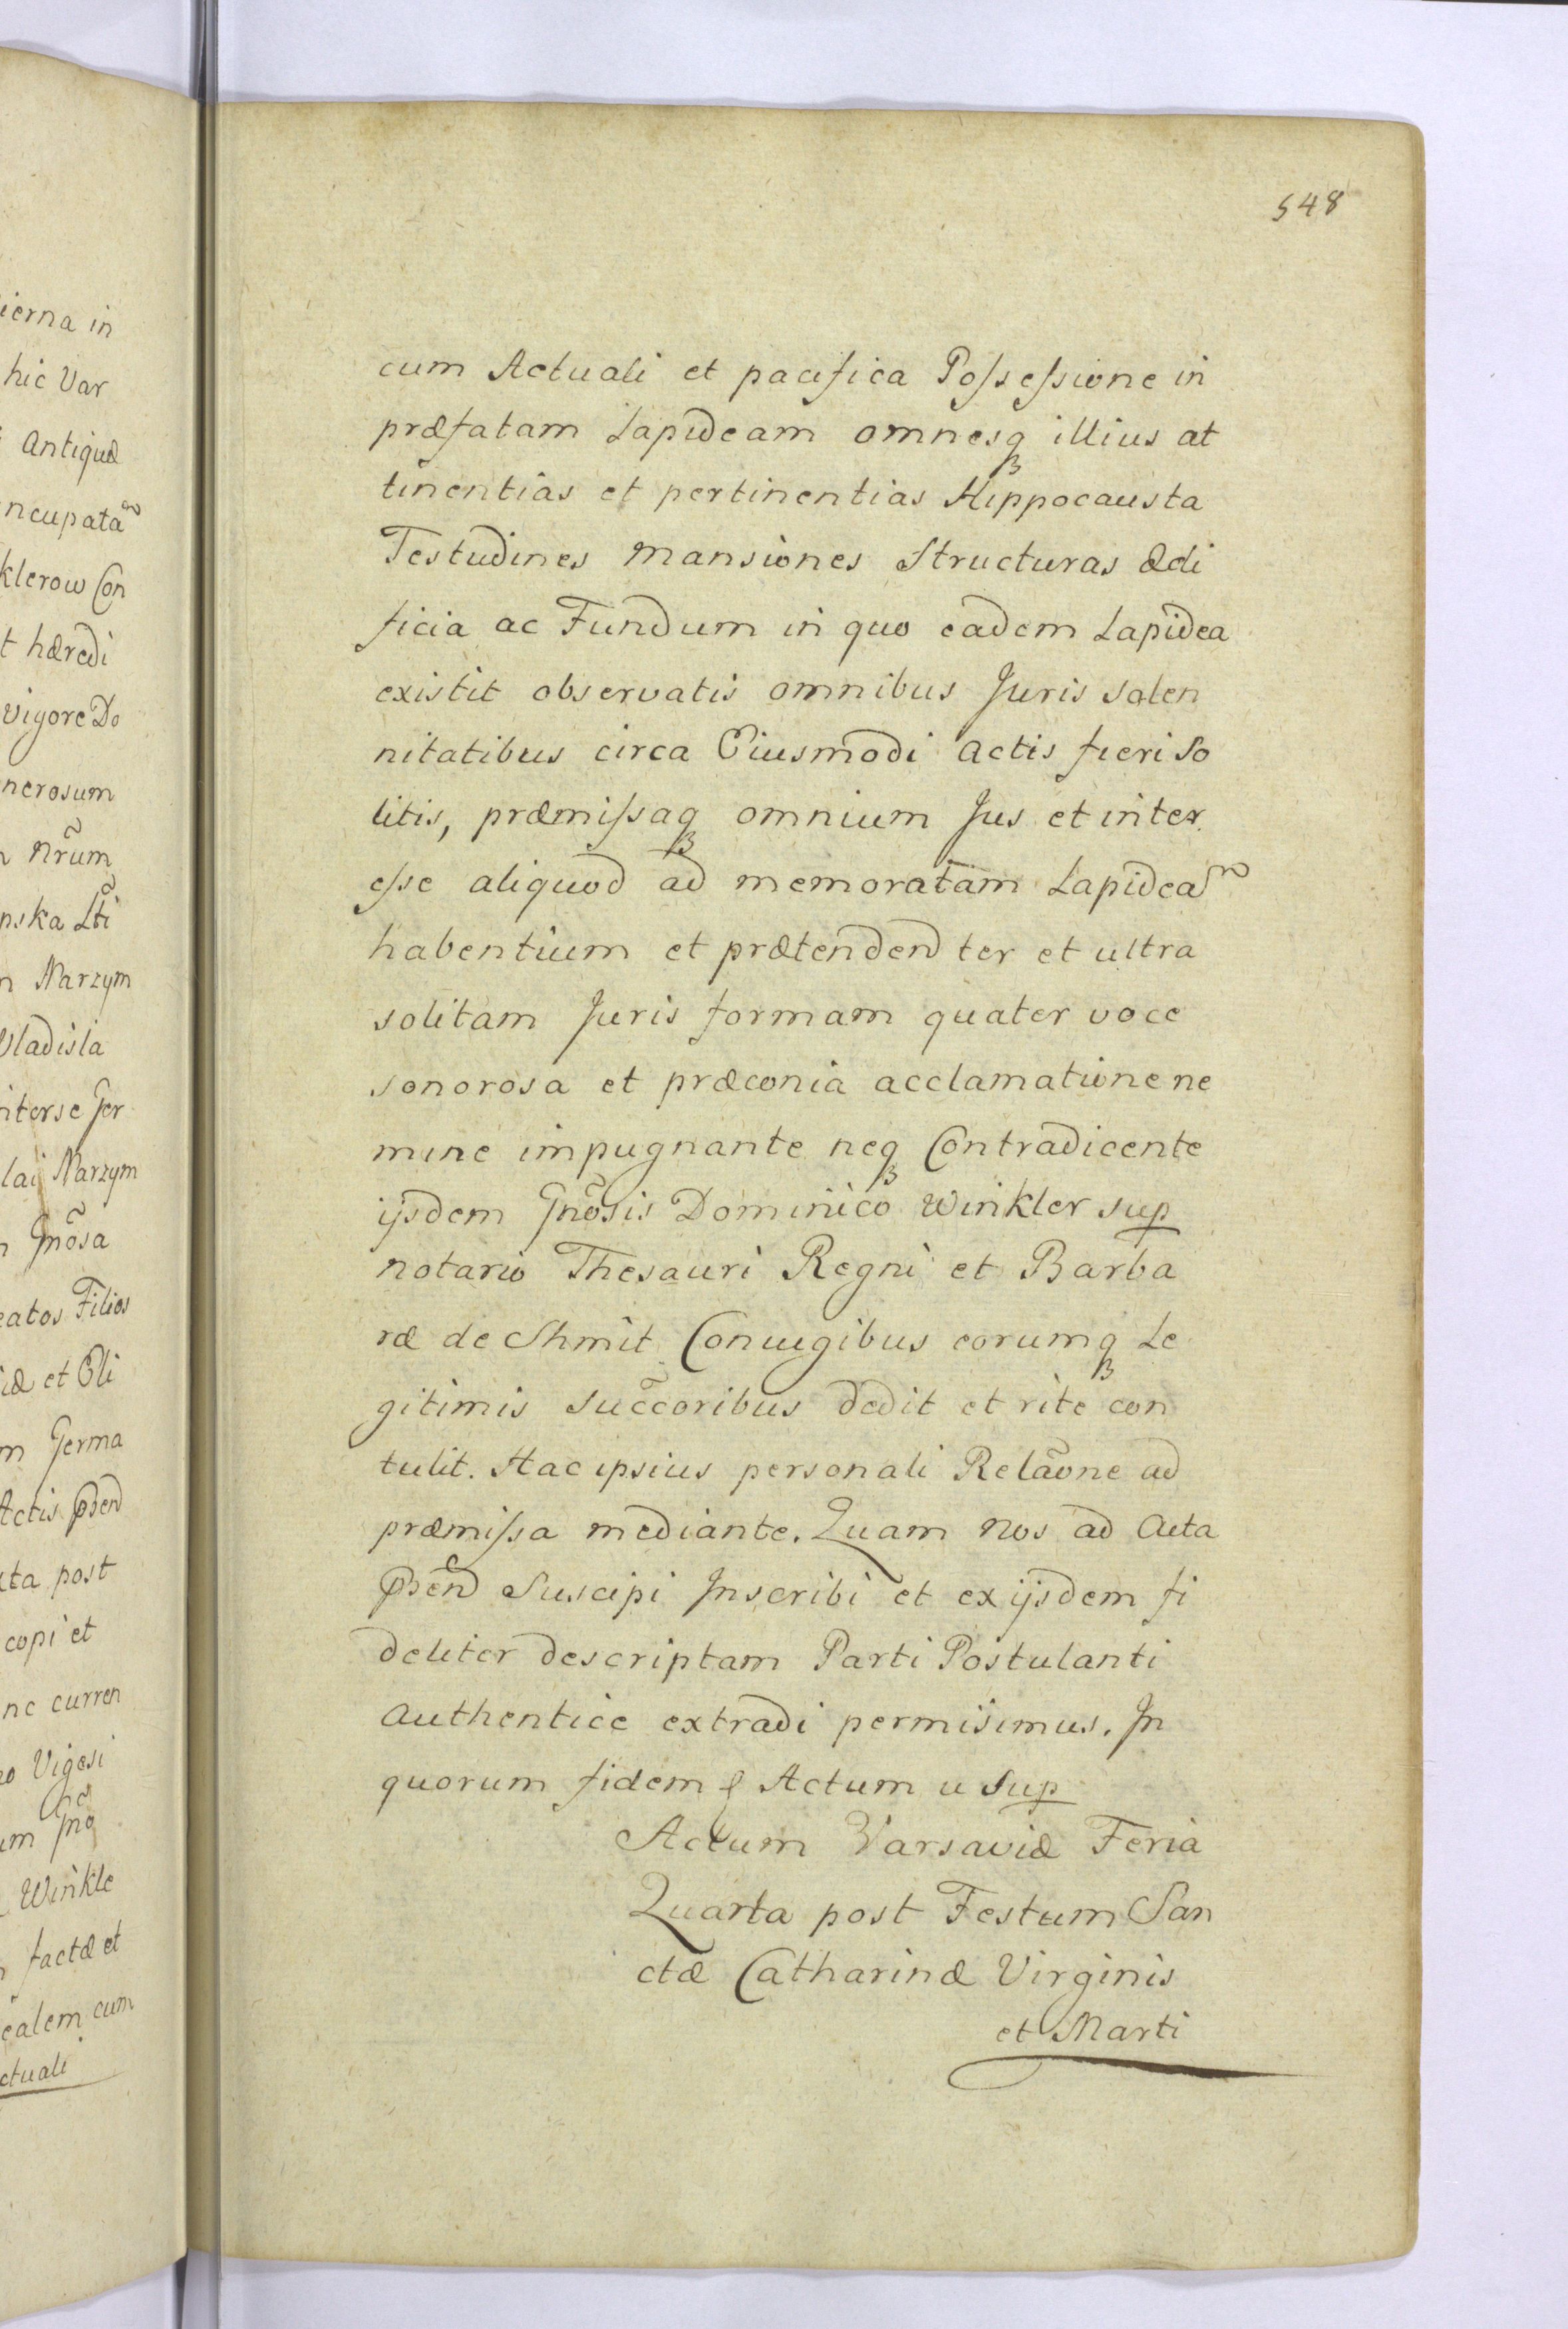 548
ierna in
hic Var
Antiquæ
ncupatã
klerow Con
t hæredi
vigore Do
nerosum
Nrũm
nska Lti
n Narzym
Vladisla
nterse Ger
lai Narzym
Gnõsa
eatos Filios
iæ et Eli
m Germa
Actis pñd
cta post
copi et
nc curren
no Vigesi
um Gnõ
Winkle
factæ et
ealem cum
ctuali
cum Actuali et pacifica Possessione in
præfatam Lapideam omnesq illius at
tinentias et pertinentias Hippocausta
Testudines mansiones Structuras ædi
ficia ac Fundum in quo eadem Lapidea
existit observatis omnibus Juris solen
nitatibus circa Eiusmodi actis fieri So
litis, præmissaq omnium Jus et inter
esse aliquod ad memoratam Lapideã
habentium et prætendend ter et ultra
solitam Juris formam quater voce
sonorosa et præconia acclamatione ne
mine impugnante neq Contradicente
ijsdem Gnõsis Dominico Winkler sup
notario Thesauri Regni et Barba
ræ de Shmit Coniugibus eorumq Le
gitimis succ̃oribus dedit et rite con
tulit. Hac ipsius personali Relãone ad
præmissa mediante. Quam nos ad acta
pñd Suscipi Inscribi et ex ijsdem fi
deliter descriptam Parti Postulanti
authentice extradi permisimus. In
quorum fidem Actum u Sup
Actum Varsaviæ Feria
Quarta post Festum San
ctæ Catharinæ Virginis
et Marti